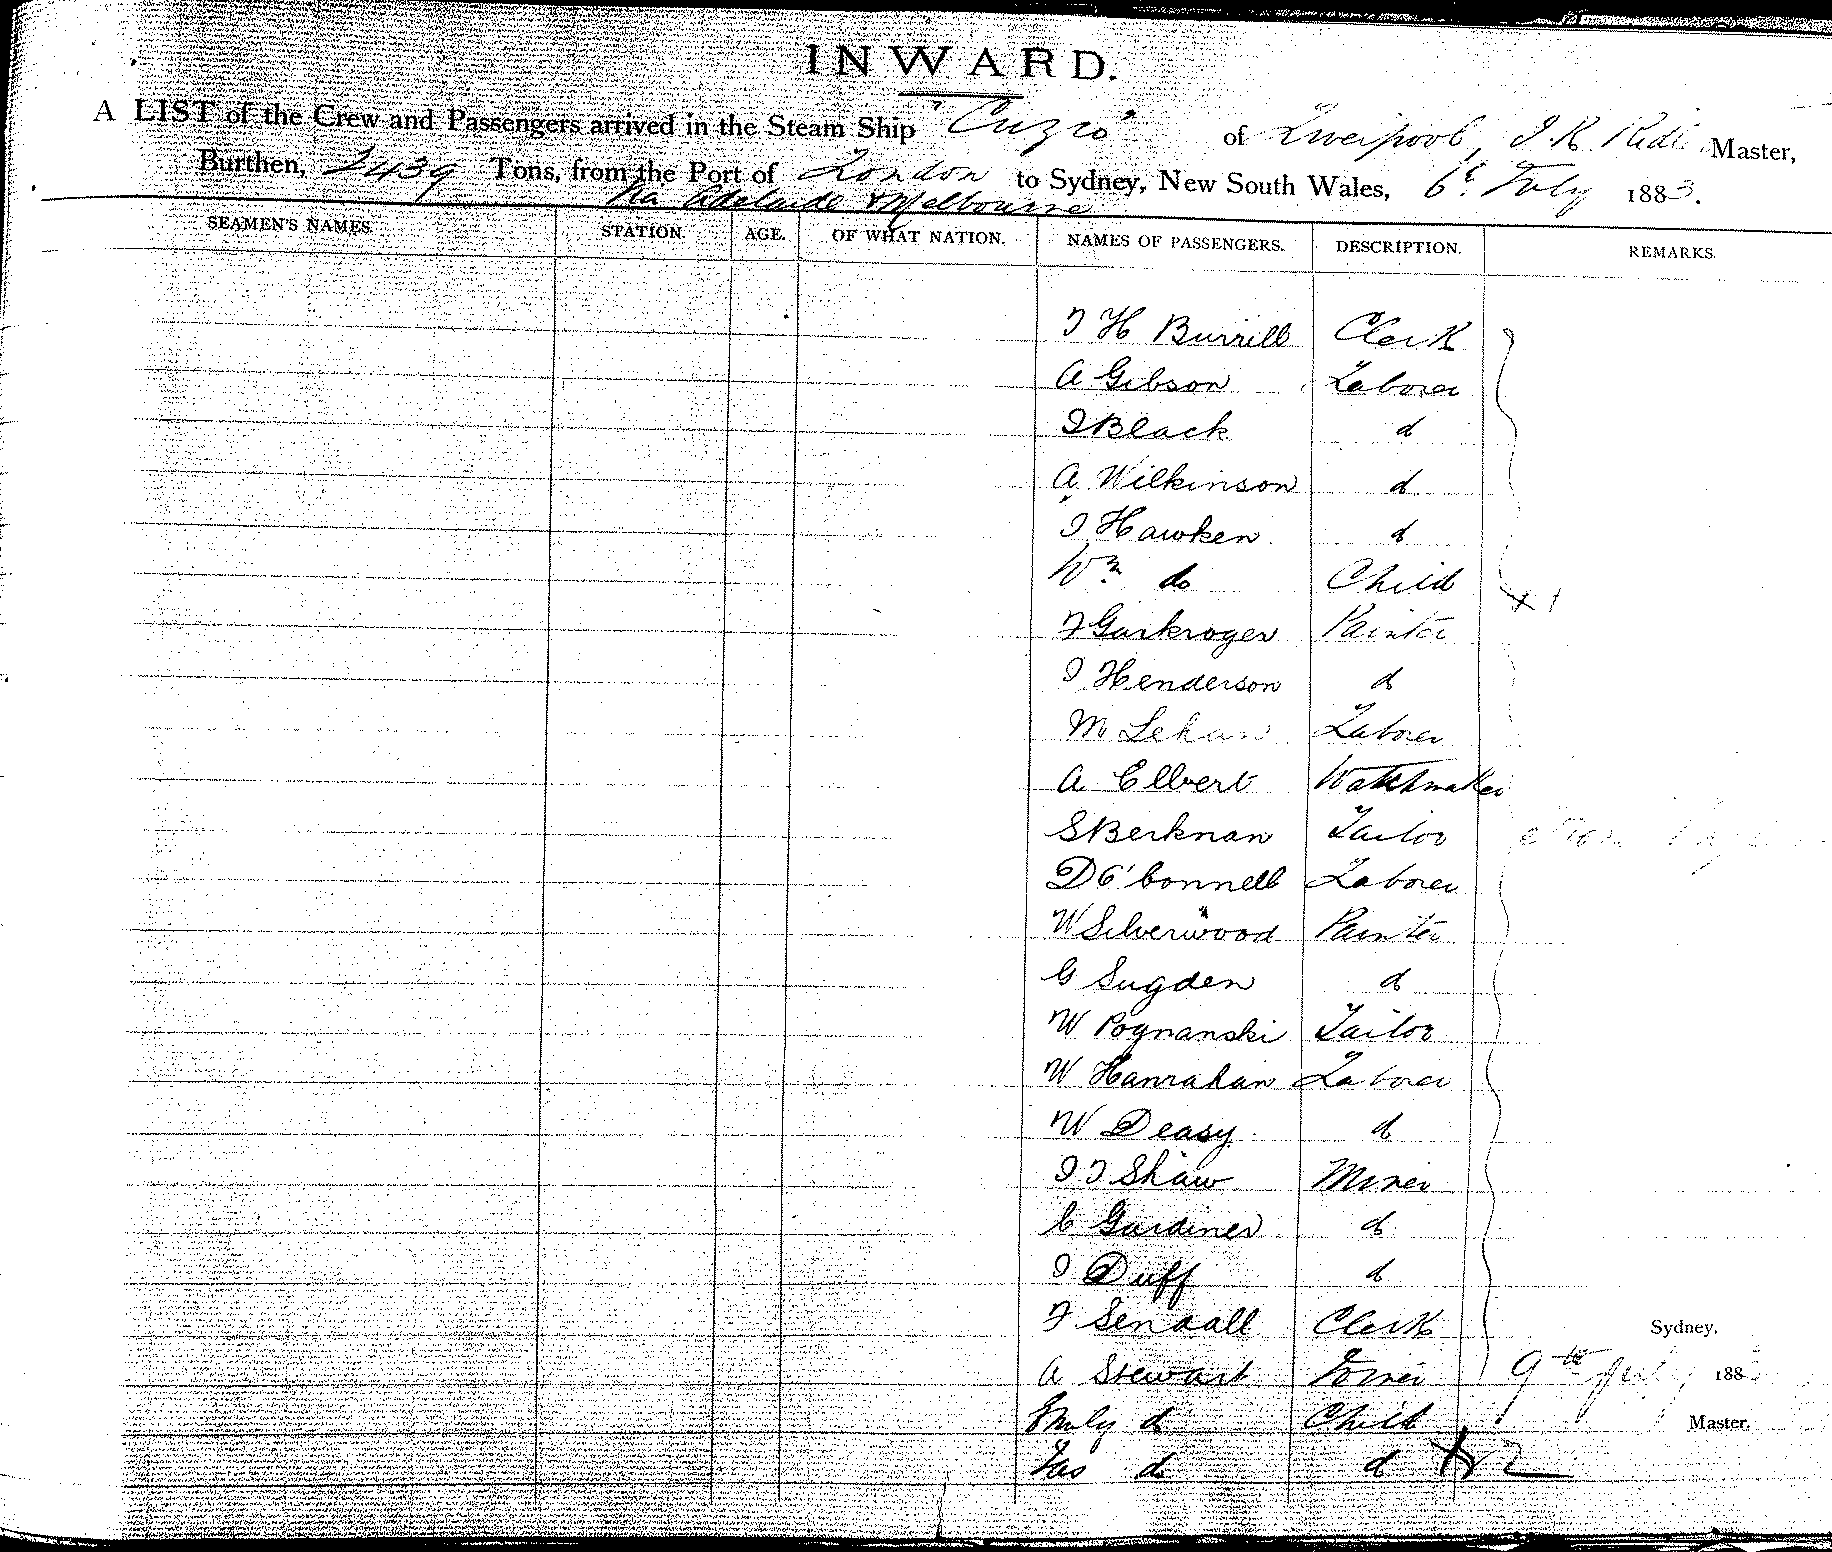 INWARD.
A LIST of the Crew and Passengers arrived in the Steam Ship "Cuzco" of Liverpool, J. K. Master,
Burthen, 2439 Tons, from the Port of London to Sydney, New South Wales, 6th July 1883.
Via Adelaide & Melbourne
SEAMEN'S NAMES. STATION. AGE. OF WHAT NATION. NAMES OF PASSENGERS. DESCRIPTION. REMARKS.
F H Burrill Clerk
A Gibson Laborer
J Black do
A Wilkinson do
J Hawken do
Wm do Child + 1
F Garkroger Painter
J Henderson do
M Lehan Laborer
A Elbert Watchmaker
S Berknan Tailor
D O'Connell Laborer
W Silverwood Painter
G Sugden do
W Poznanski Tailor
W Hanrahan Laborer
W Deasy do
J T Shaw Miner
C Gardiner do
J Duff do
F Sendall Clerk Sydney,
A Stewart Joiner 9th July 188
Emily do Child Master.
Jas do do 2